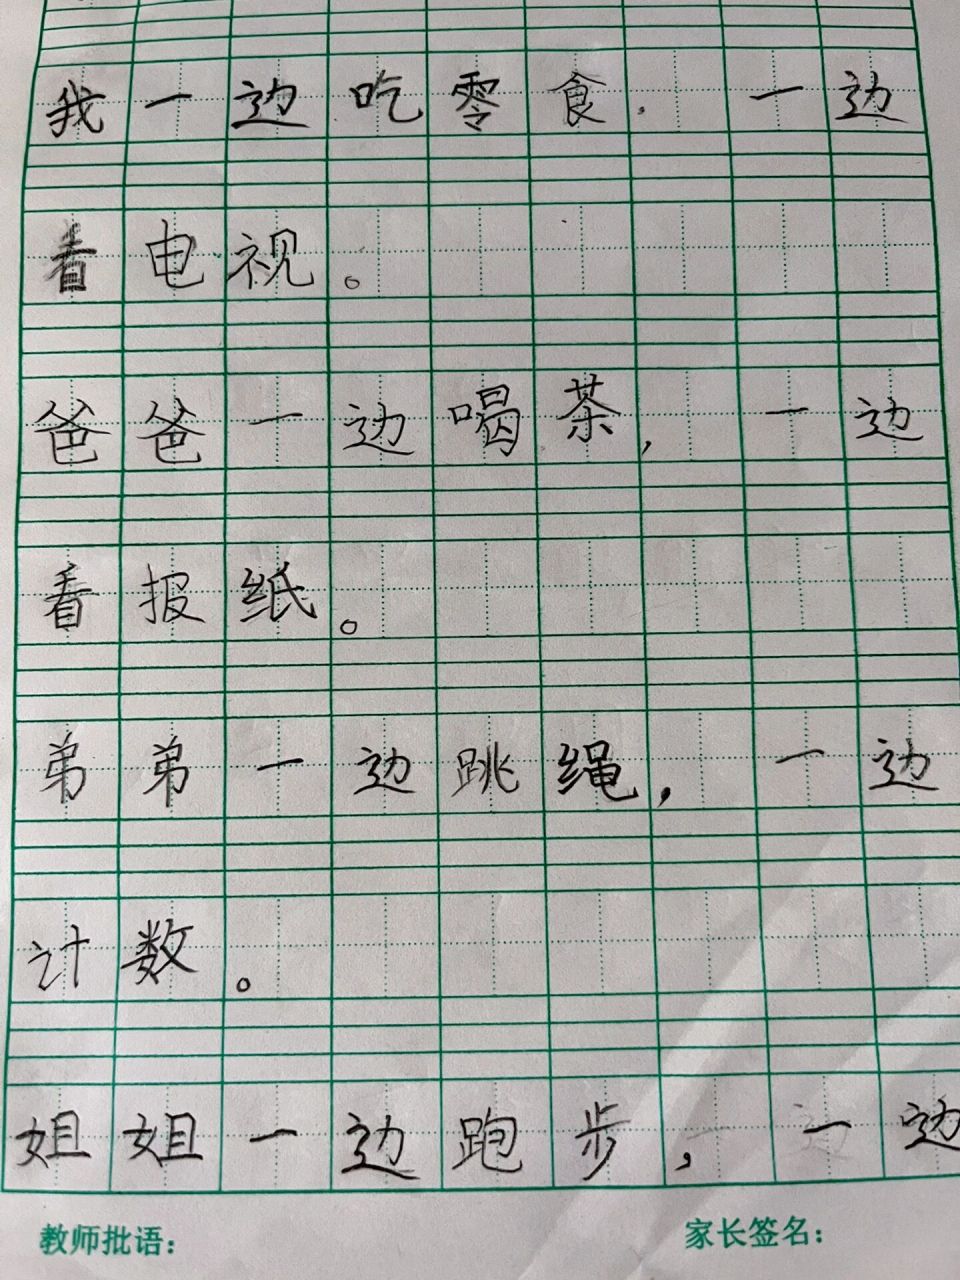 我一边吃零食,一边
看电视。
爸爸一边喝茶,一边
看报纸。
弟弟一边跳绳,一边
计数。
姐姐一边跑步,一边
教师批语: 家长签名: